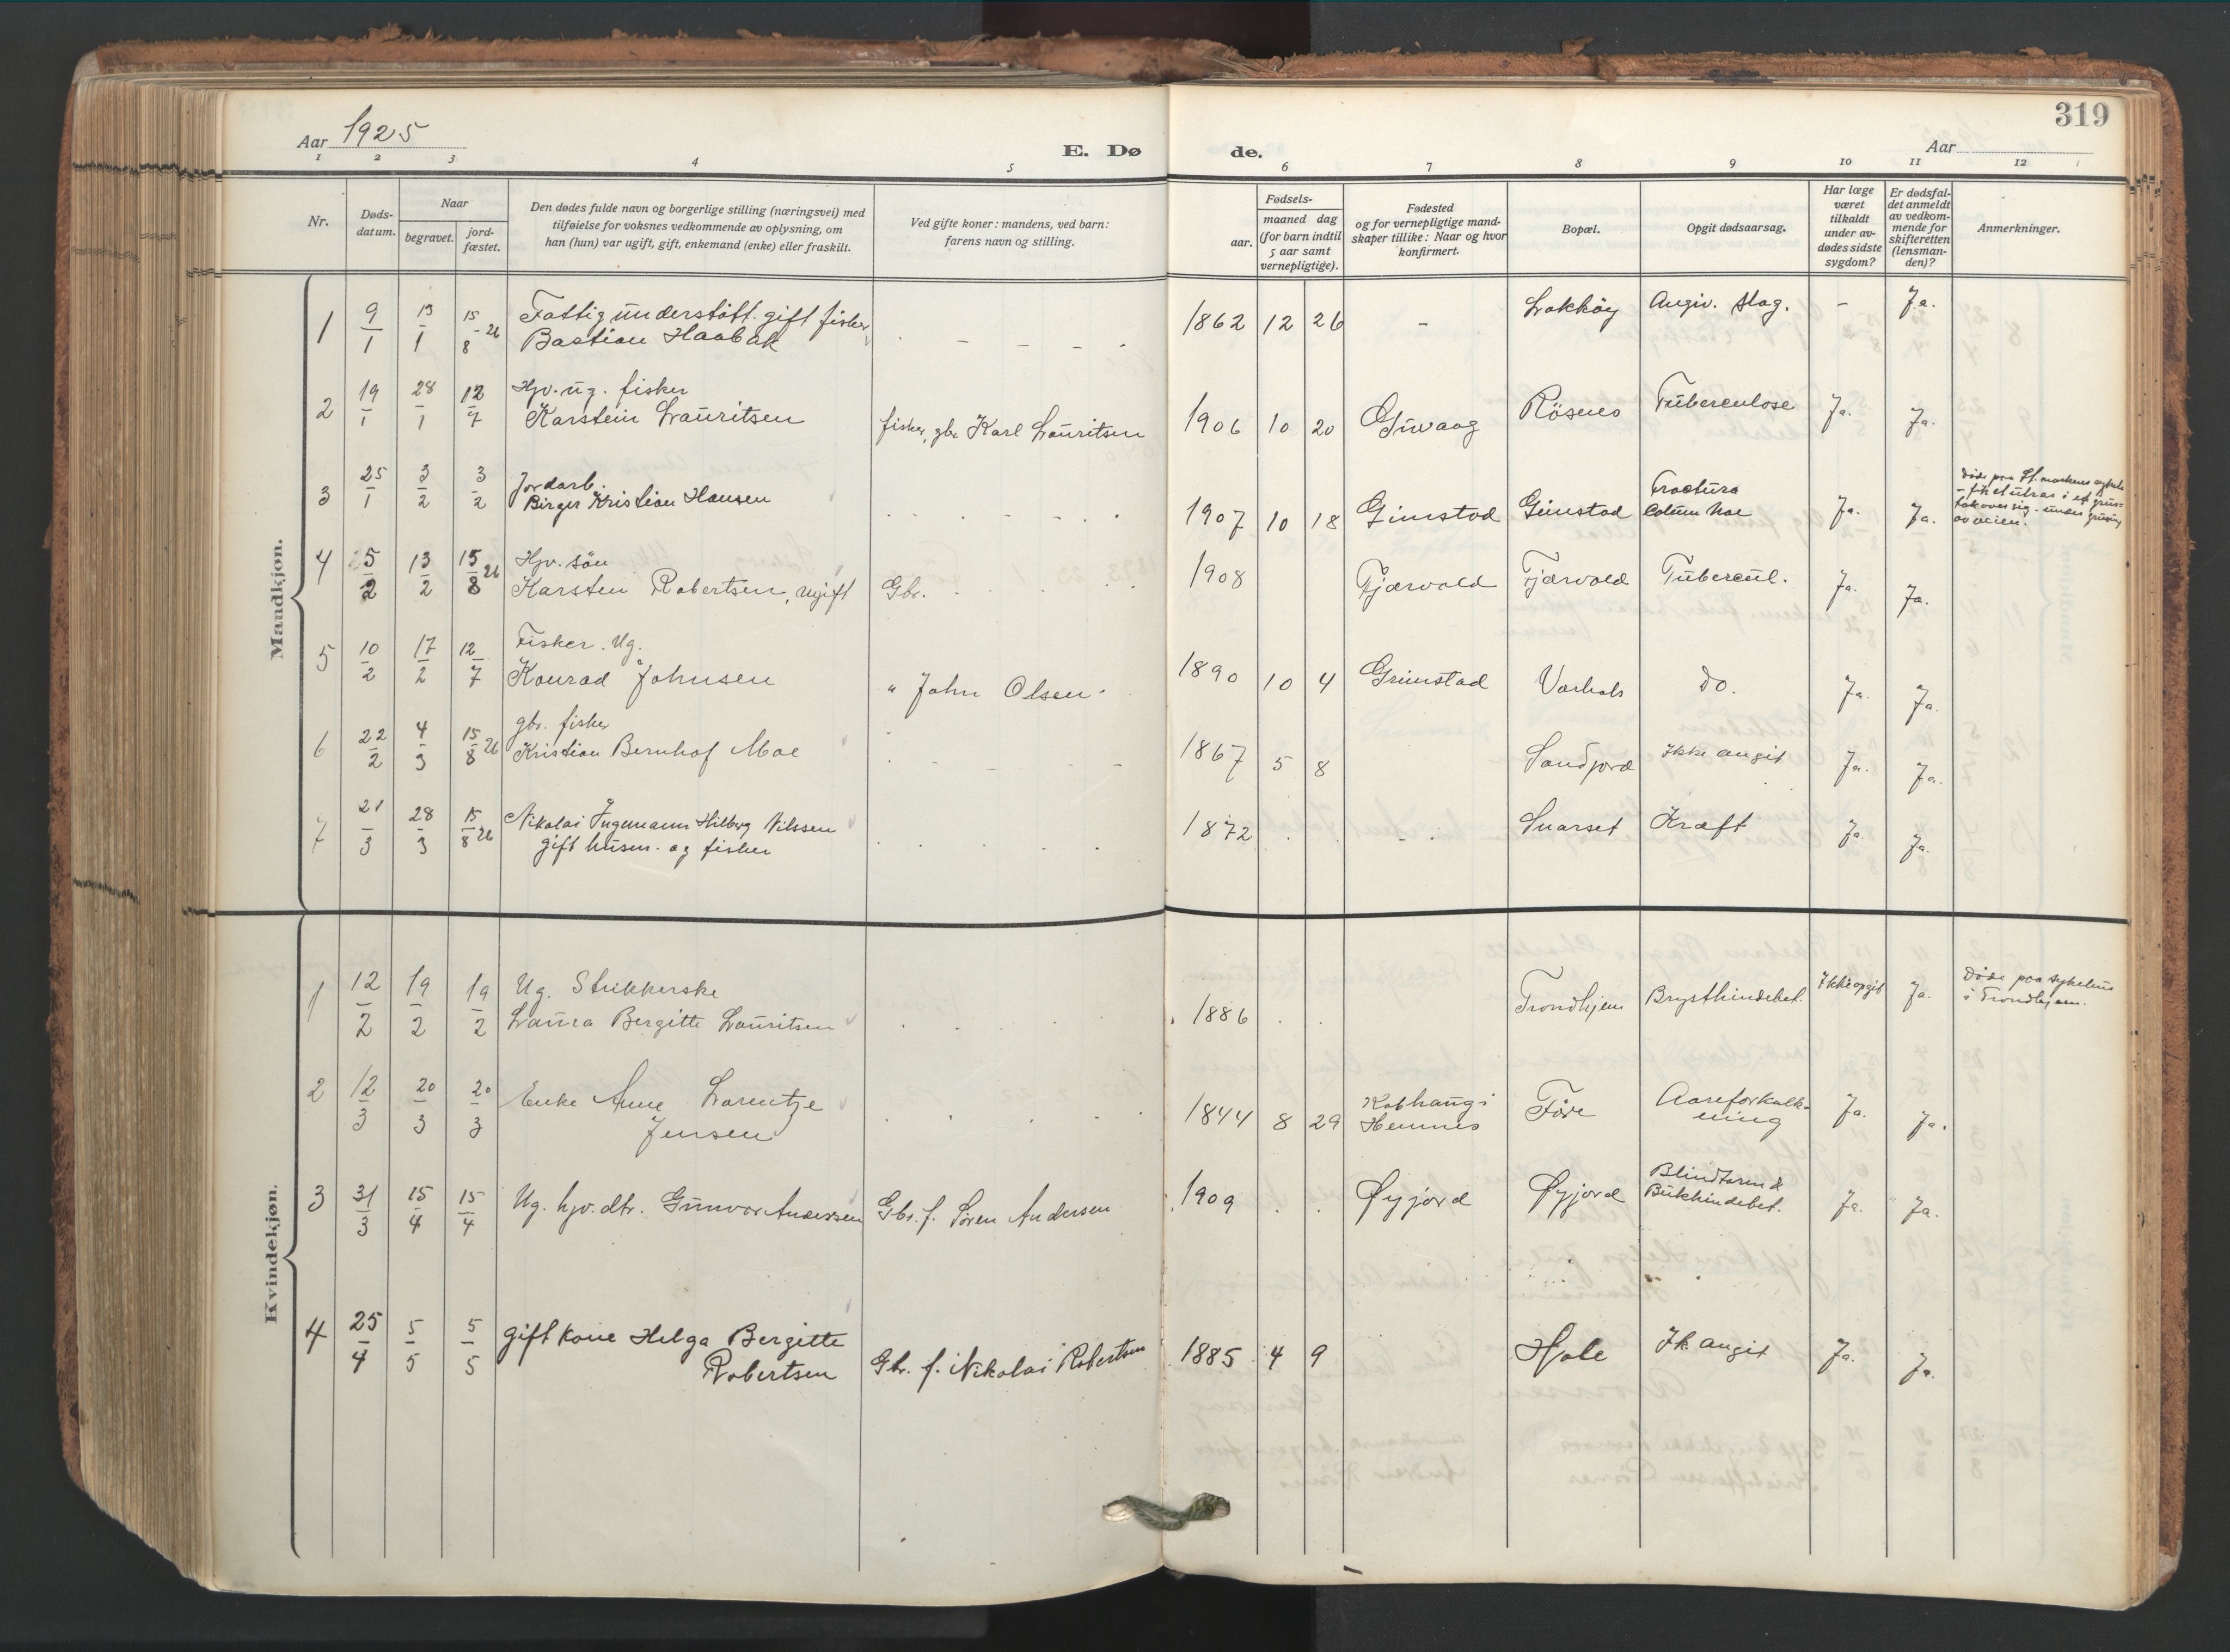 319
Aar 1925
E. Dø
de.
Aar
1 2 3 4 5 6 7 8 9 10 11 12
Nr.
Døds-
datum.
Naar
begravet.
jord-
fæstet.
Den dødes fulde navn og borgerlige stilling (næringsvei) med
tilføielse for voksnes vedkommende av oplysning, om
han (hun) var ugift, gift, enkemand (enke) eller fraskilt.
Ved gifte koner: mandens, ved barn:
farens navn og stilling.
Fødsels-
aar.
maaned dag
(for barn indtil
5 aar samt
vernepligtige).
Fødested
og for vernepligtige mand-
skaper tillike: Naar og hvor
konfirmert.
Bopæl.
Opgit dødsaarsag.
Har læge
været
tilkaldt
under av-
dødes sidste
sygdom?
Er dødsfal-
det anmeldt
av vedkom-
mende for
skifteretten
(lensman-
den)?
Anmerkninger.
Mandkjøn.
1 9/1 13/1 15/8-26 Fattigunderstøtt. gift fisker
Bastian Haabak - - - - 1862 12 26 - Angiv. slag. - Ja.
2 19/1 28/1 12/7 Hjv. ug. fisker
Karstein Lauritsen fisker, gbr. Karl Lauritsen 1906 10 20 Tuberculose Ja. Ja.
3 25/1 3/2 3/2 Jordarb.
Birger Kristian Hansen 1907 10 18 Grimstad Grimstad Fractura
Ja. Ja.
4 5/2 13/2 15/8 26 Hjv. søn
Karsten Robertsen, ugift Gbr. 1908 Fjærvold Fjærvold Tubercul. Ja. Ja.
5 10/2 17/2 12/7 Fisker. Ug.
Konrad Johnsen " John Olsen 1890 10 4 Grimstad do. Ja. Ja.
6 22/2 4/3 15/8 26 gbr. fisker
Kristian Bernhof Moe - - - - 1867 5 8 Sandfjord Ikke angit Ja. Ja.
7 21/3 28/3 15/8 26 Nikolai Ingemann Hilberg Nilssen
gift husm. og fisker 1872 Snarset Kræft Ja. Ja.
Kvindekjøn.
1 12/2 19/2 19/2 Ug. Strikkerske
Laura Bergitte Lauritsen 1886 Trondhjem Brysthindebet. Ikke opgit Ja. Døde paa sykehus
i Trondhjem.
2 12/3 20/3 20/3 Enke Anne Lorentze
Jensen 1844 8 29
Hemnes Føre Aareforkalk-
ning Ja. Ja.
3 31/3 15/4 15/4 Ug. hjv. dtr. Gunvor Andersen Gbr. f. Søren Andersen 1909 Øyjord Øyjord Blindtarm &
Bukhindebet. Ja. Ja.
4 25/4 5/5 5/5 gift kone Helga Bergitte
Robertsen Gbr. f. Nikolai Robertsen 1885 4 9 Hole Ik. angit Ja. Ja.